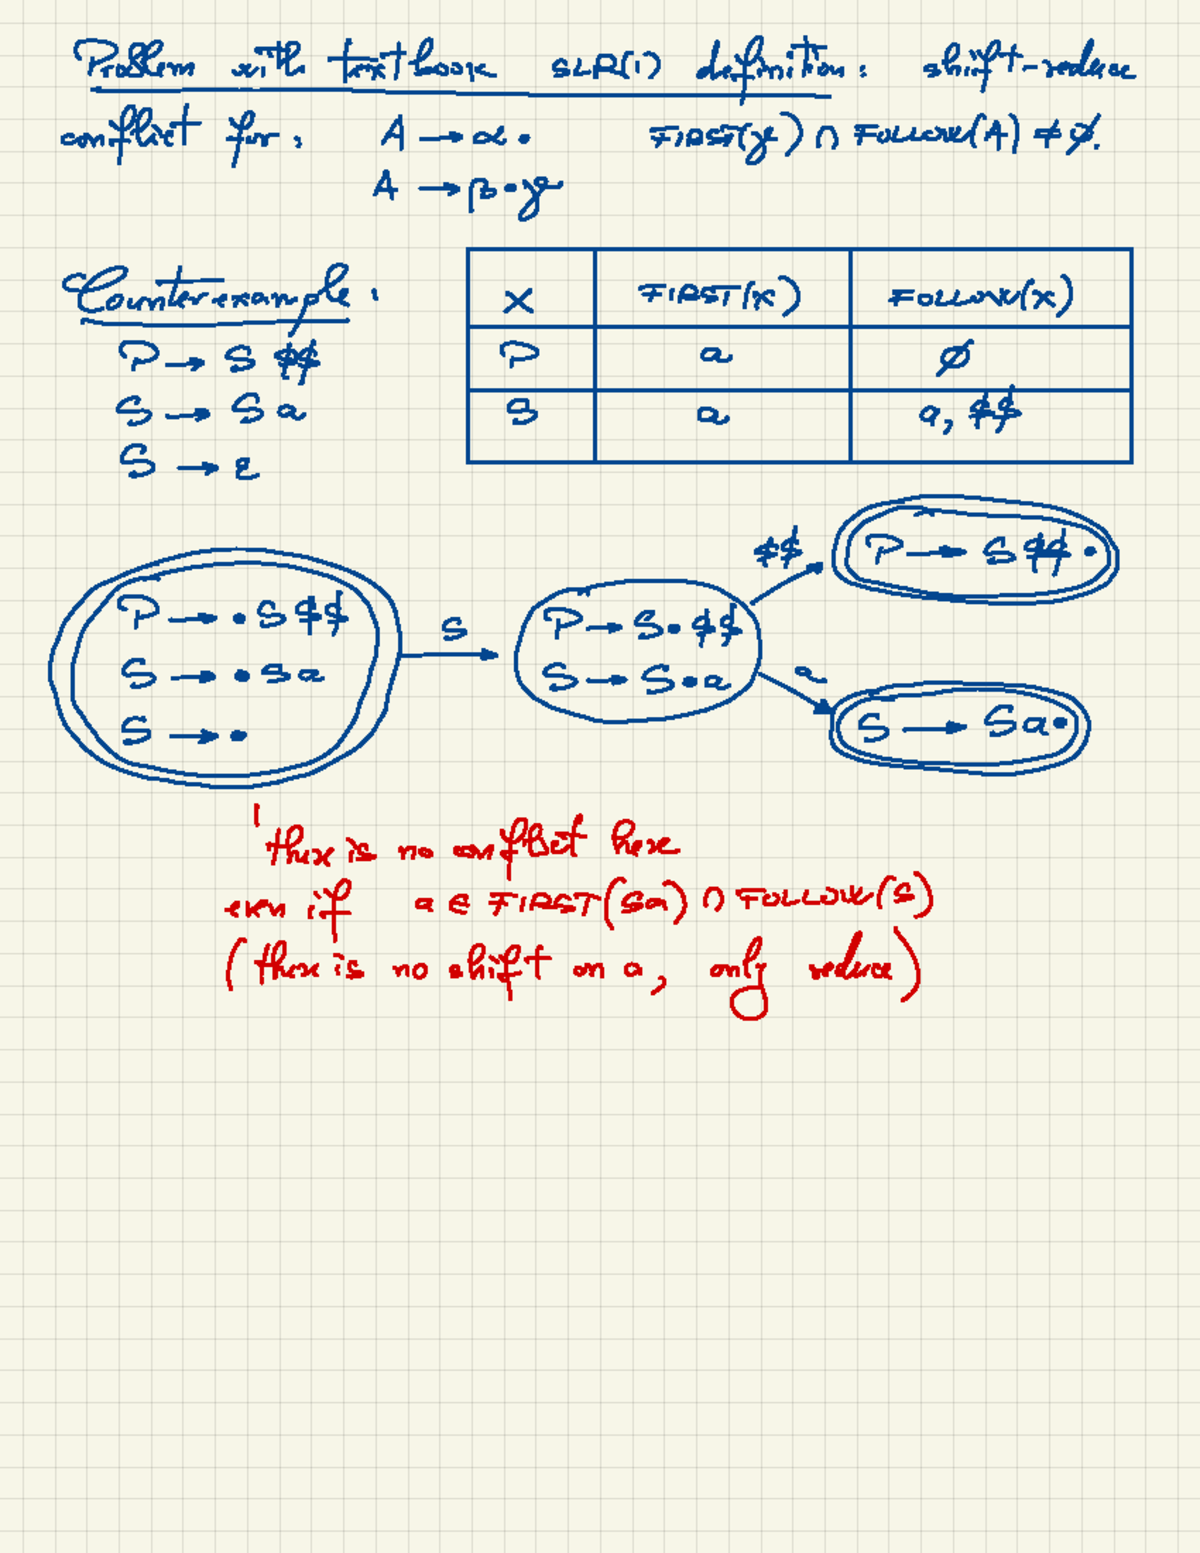 Problem with textbook SLR(1) definition: shift-reduce
conflict for: A → α • FIRST(γ) ∩ FOLLOW(A) ≠ ∅.
A → β • γ
Counterexample:
P → S $$
S → S a
S → ε
X FIRST(X) FOLLOW(X)
P a ∅
S a a, $$
P → • S $$
S → • S a
S → •
S
P → S • $$
S → S • a
$$
P → S $$ •
a
S → S a •
there is no conflict here
even if a ∈ FIRST(Sa) ∩ FOLLOW(S)
(there is no shift on a, only reduce)